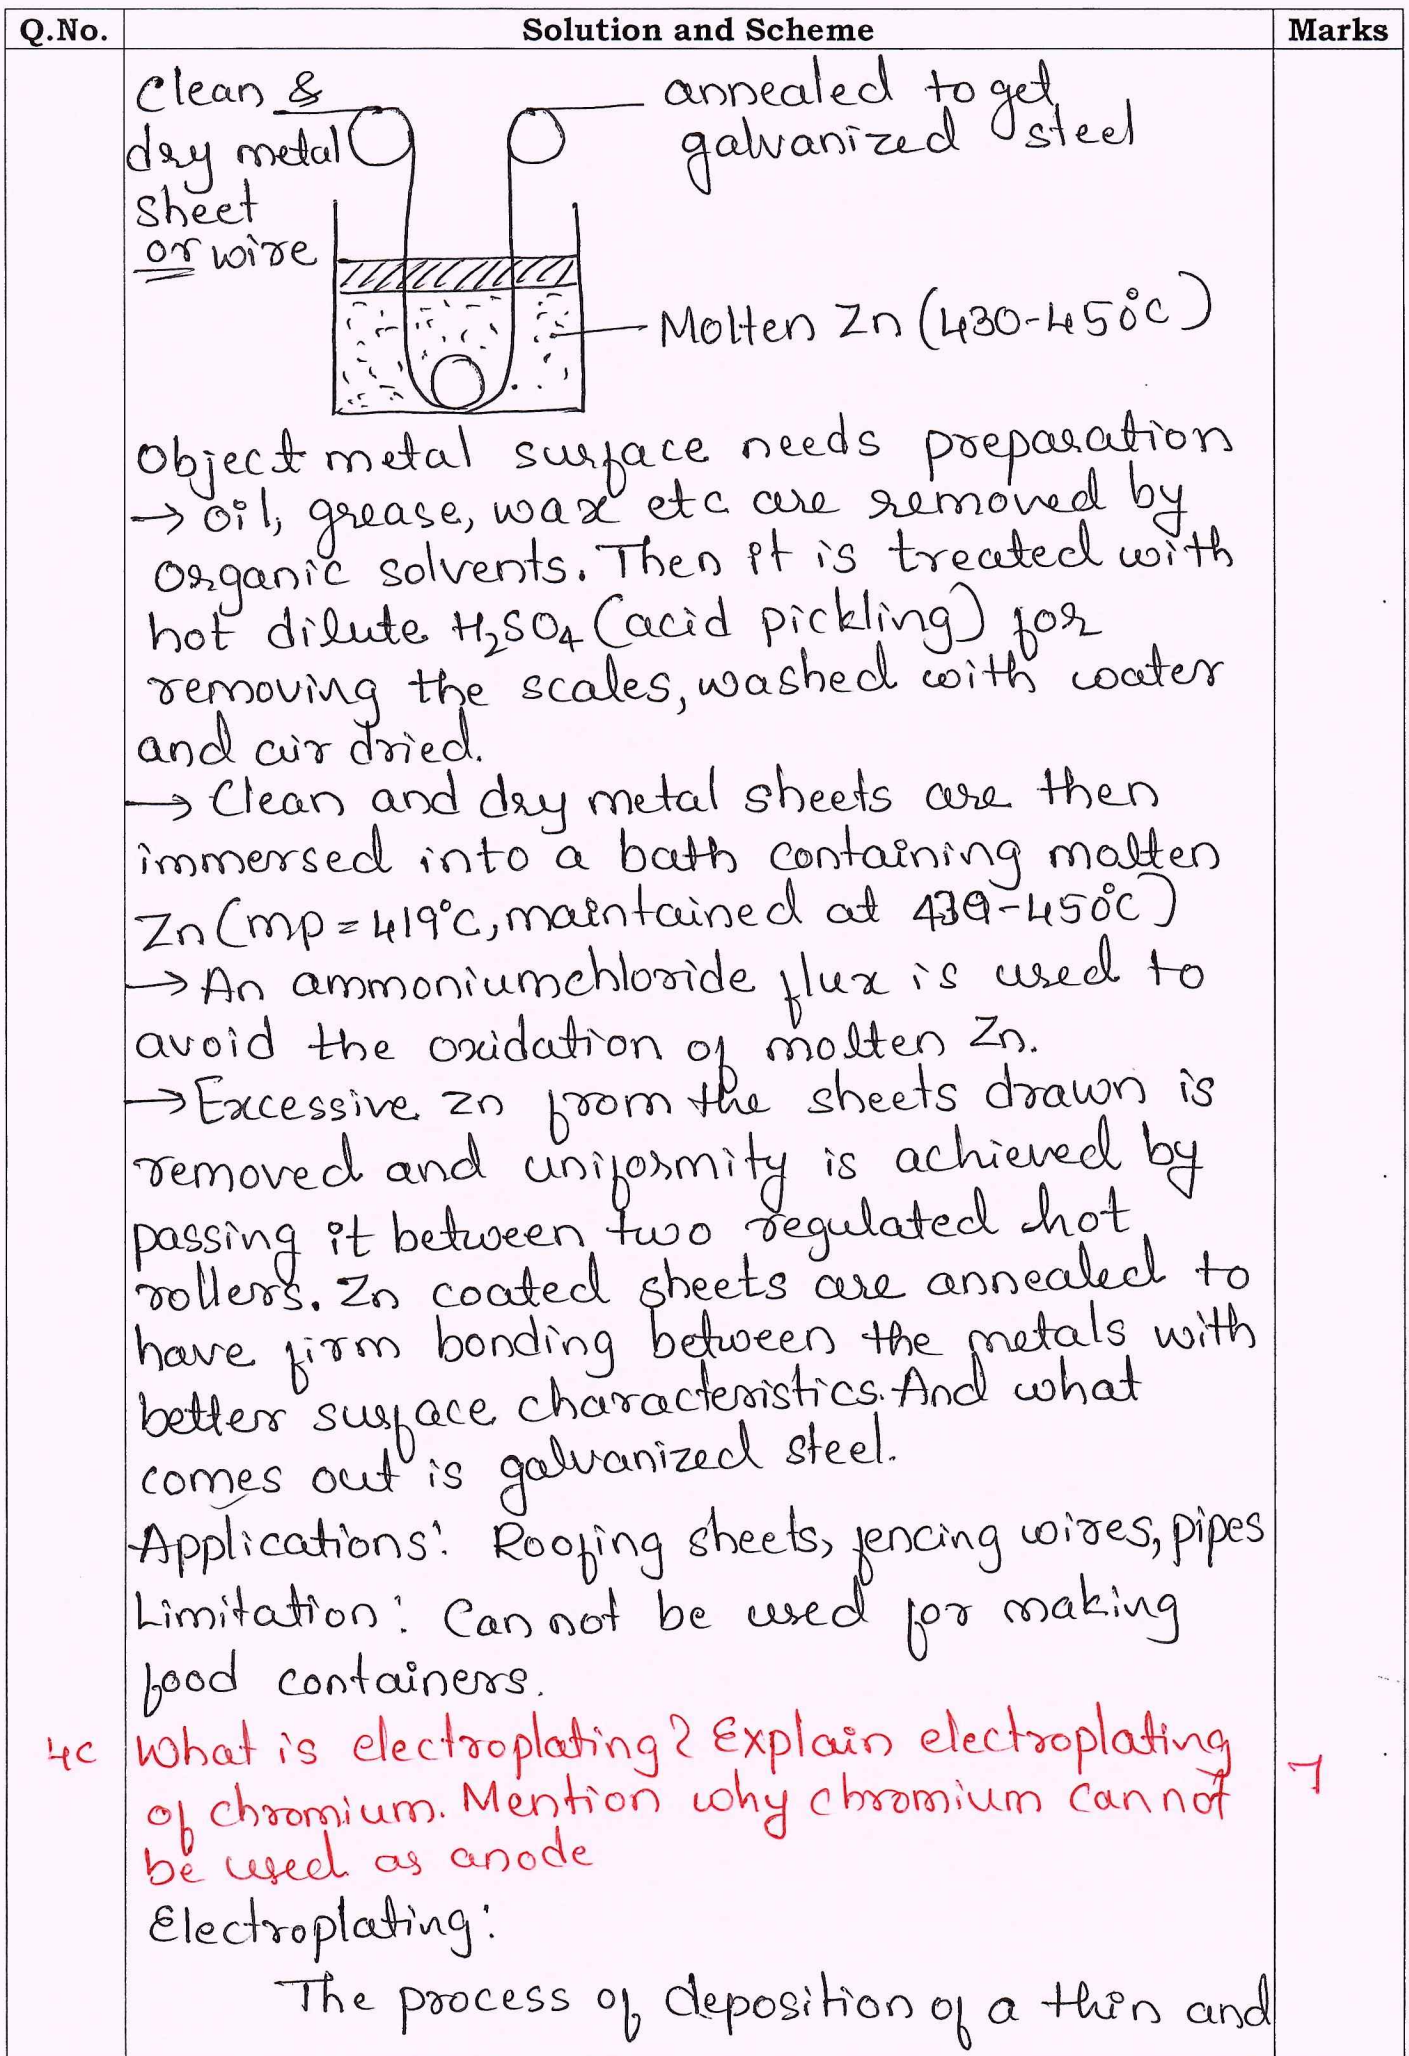 Q.No. Solution and Scheme Marks
Clean & annealed to get
dry metal galvanized steel
sheet
or wire
Molten Zn (430-450°C)
Object metal surface needs preparation
→ oil, grease, wax etc are removed by
organic solvents. Then it is treated with
hot dilute H₂SO₄ (acid pickling) for
removing the scales, washed with water
and air dried.
→ Clean and dry metal sheets are then
immersed into a bath containing molten
Zn (mp = 419°C, maintained at 430-450°C)
→ An ammoniumchloride flux is used to
avoid the oxidation of molten Zn.
→ Excessive Zn from the sheets drawn is
removed and uniformity is achieved by
passing it between two regulated hot
rollers. Zn coated sheets are annealed to
have firm bonding between the metals with
better surface characteristics. And what
comes out is galvanized steel.
Applications: Roofing sheets, fencing wires, pipes
Limitation: Can not be used for making
food containers.
4c What is electroplating? Explain electroplating 7
of chromium. Mention why chromium can not
be used as anode
Electroplating:
The process of deposition of a thin and